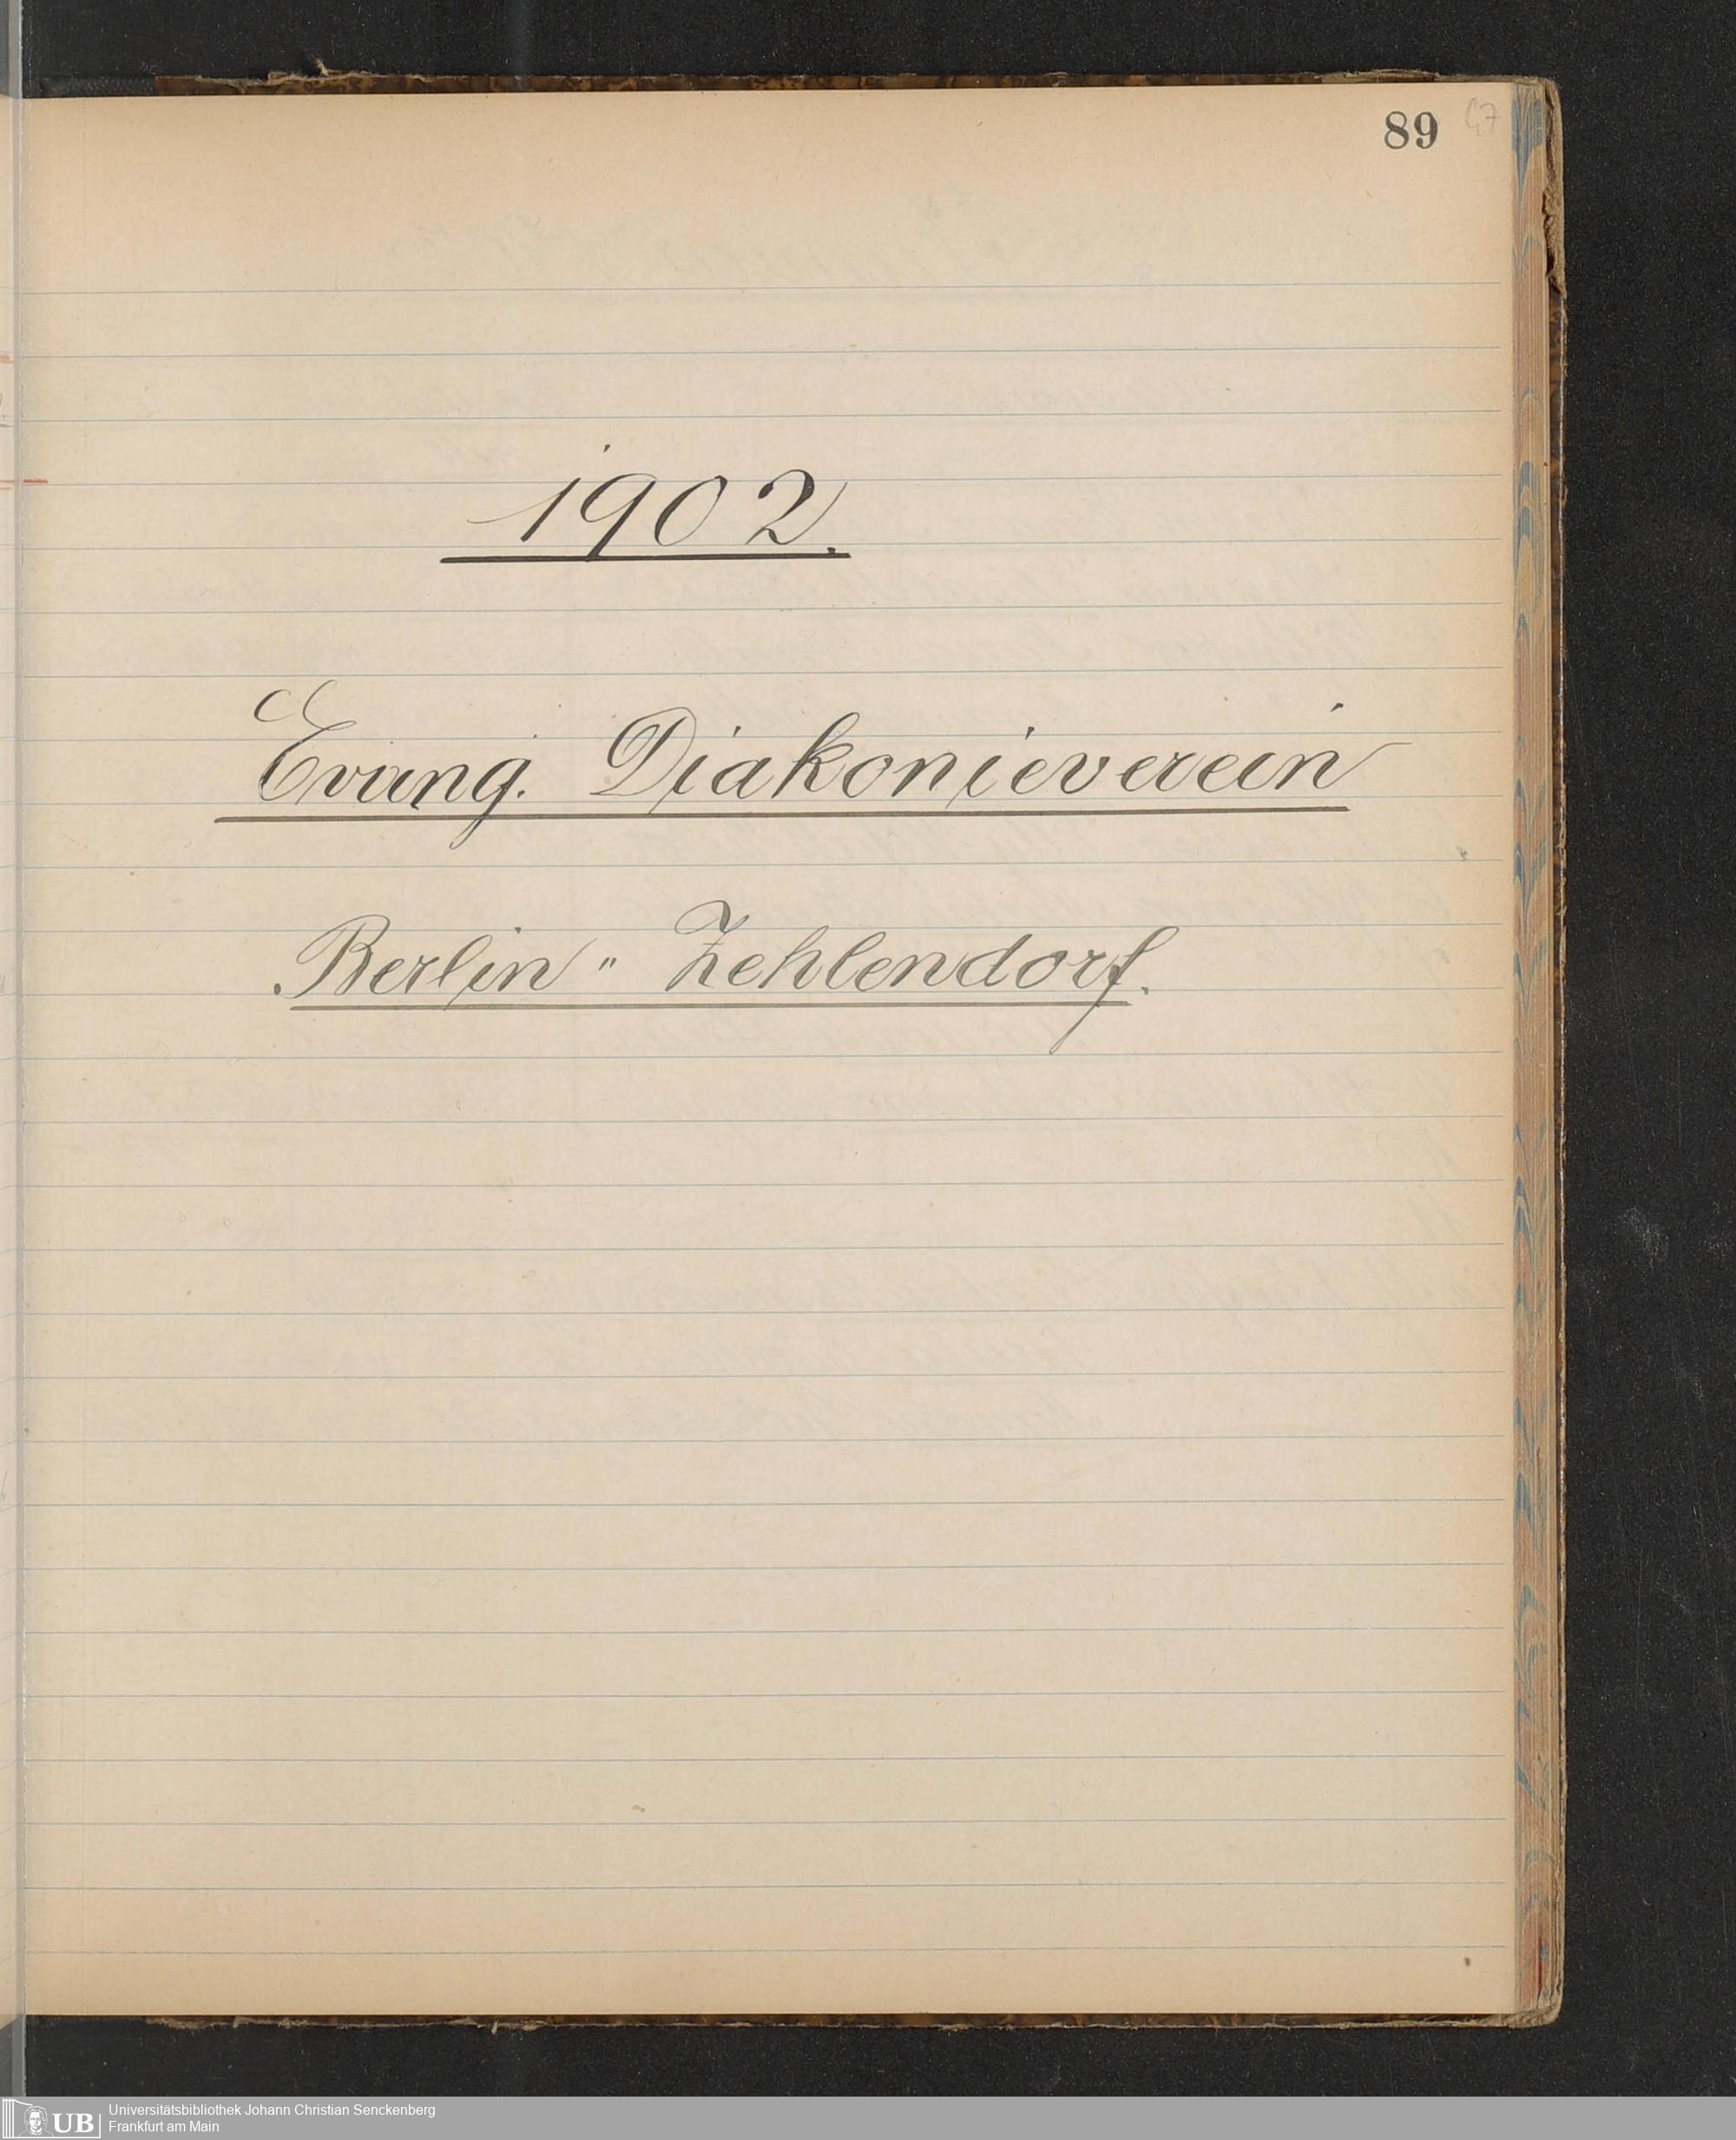 89 47
1902.
Evang. Diakonieverein
Berlin " Zehlendorf.
UB
Universitätsbibliothek Johann Christian Senckenberg
Frankfurt am Main